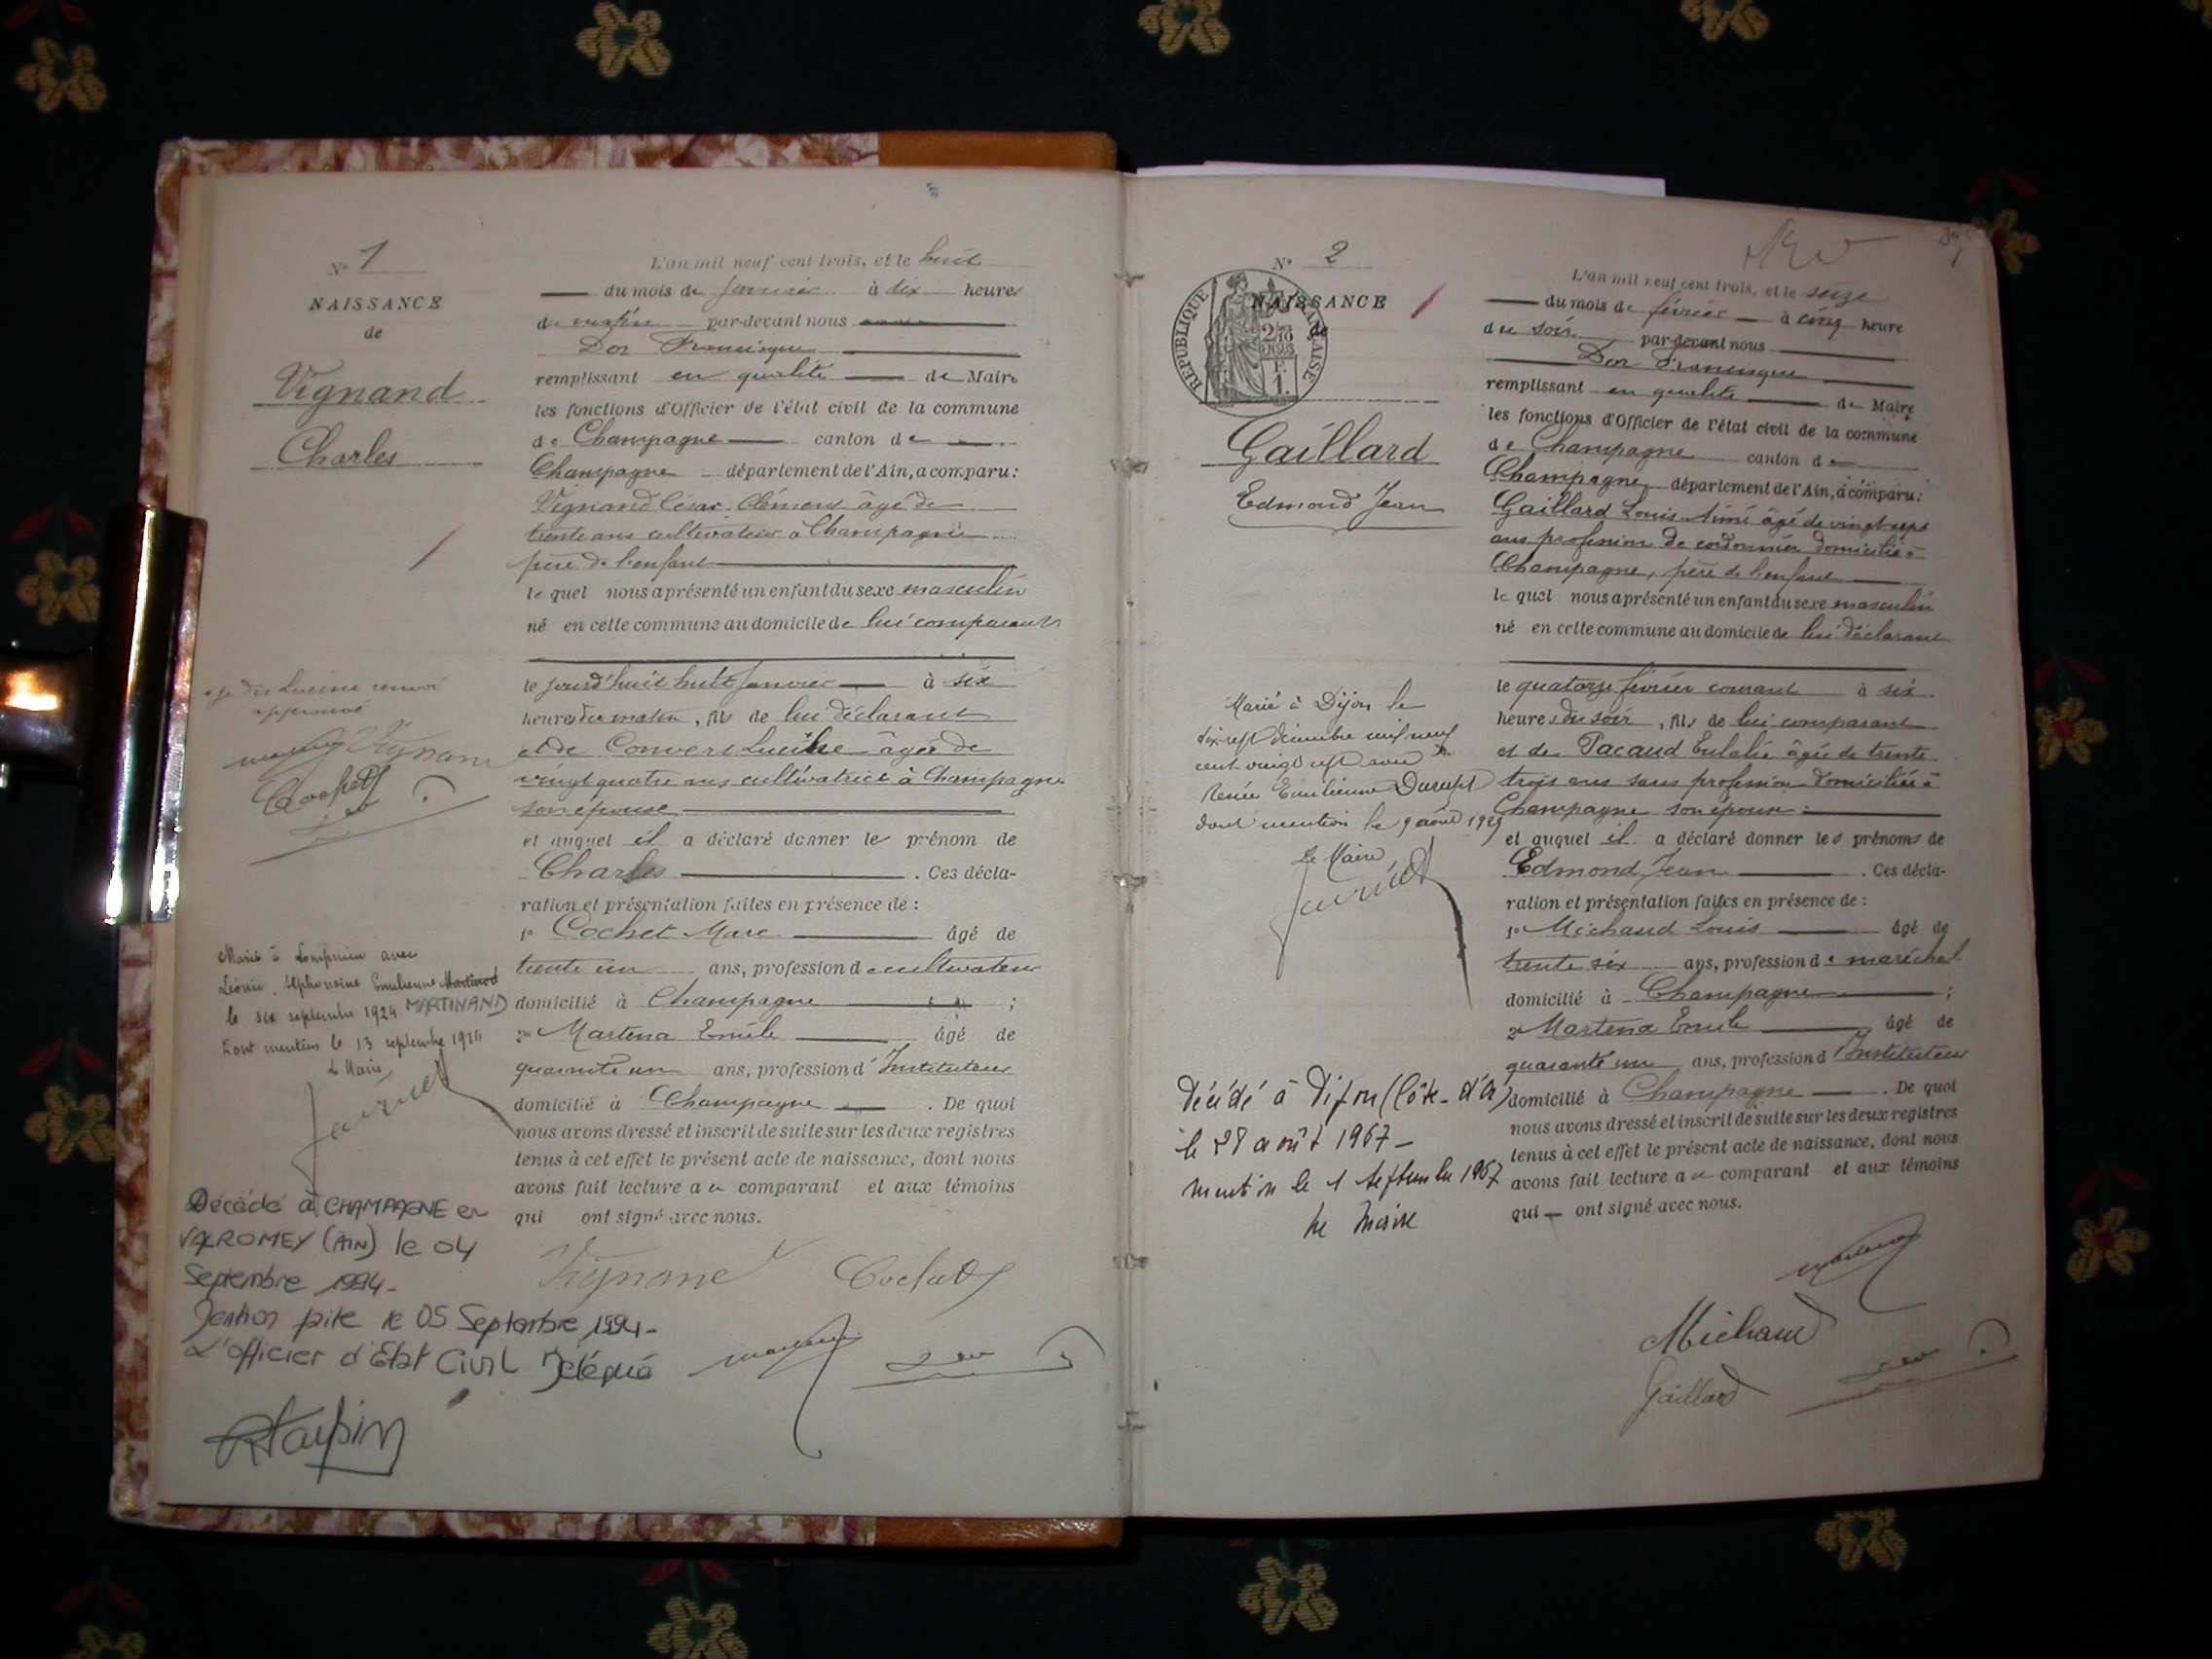 N° 1
NAISSANCE
de
Vignand
Charles
L'an mil neuf cent trois, et le huit
du mois de Janvier à dix heures
du matin par-devant nous
Dor Francisque
remplissant en qualité de Maire
les fonctions d'Officier de l'état civil de la commune
de Champagne canton de
Champagne département de l'Ain, a comparu:
Vignand César Clément âgé de
trente ans cultivateur à Champagne
père de l'enfant
le quel nous a présenté un enfant du sexe masculin
né en cette commune au domicile de lui comparant
le jourd'huit huit Janvier à six
heures du matin, fils de lui déclarant
et de Convert Lucine âgée de
vingt quatre ans cultivatrice à Champagne
son épouse
et auquel il a déclaré donner le prénom de
Charles . Ces décla-
ration et présentation faites en présence de :
1° Cochet Marc âgé de
trente un ans, profession de cultivateur
domicilié à Champagne ;
2° Martena Emile âgé de
quarante un ans, profession d'Instituteur
domicilié à Champagne . De quoi
nous avons dressé et inscrit de suite sur les deux registres
tenus à cet effet le présent acte de naissance, dont nous
avons fait lecture au comparant et aux témoins
qui ont signé avec nous.
Vignand Cochet
dis Lucine renvoi
approuvé
Vignand
Cochet
Marié à Lompnieu avec
Léonie, Alphonsine Emilienne Martinod
le six septembre 1924. MARTINAND
Dont mention le 13 septembre 1924
Le Maire,
Décédé à CHAMPAGNE en
VALROMEY (AIN) le 04
Septembre 1994-
Mention faite le 05 Septembre 1994-
L'officier d'Etat Civil Délégué
N° 2
NAISSANCE
de
REPUBLIQUE FRANÇAISE
2/10
EN SUS
1F.
Gaillard
Edmond Jean
L'an mil neuf cent trois, et le seize
du mois de février à cinq heure
du soir par-devant nous
Dor Francisque
remplissant en qualité de Maire
les fonctions d'Officier de l'état civil de la commune
de Champagne canton de
Champagne département de l'Ain, a comparu:
Gaillard Louis Aimé âgé de vingt sept
ans profession de cordonnier domicilié à
Champagne, père de l'enfant
le quel nous a présenté un enfant du sexe masculin
né en cette commune au domicile de lui déclarant
le quatorze février courant à six
heures du soir, fils de lui comparant
et de Pacaud Eulalie âgée de trente
trois ans sans profession domiciliée à
Champagne son épouse
et auquel il a déclaré donner les prénoms de
Edmond Jean . Ces décla-
ration et présentation faites en présence de :
1° Michaud Louis âgé de
trente six ans, profession de maréchal
domicilié à Champagne ;
2° Martena Emile âgé de
quarante un ans, profession d'Instituteur
domicilié à Champagne . De quoi
nous avons dressé et inscrit de suite sur les deux registres
tenus à cet effet le présent acte de naissance, dont nous
avons fait lecture au comparant et aux témoins
qui ont signé avec nous.
Michaud
Gaillard
Marié à Dijon le
dix-sept décembre mil neuf
cent vingt sept avec
Renée Emilienne
dont mention le 9 août 1929
Le Maire,
Décédé à Dijon (Côte-d'Or)
le 28 août 1967-
mention le 1 septembre 1967
Le Maire